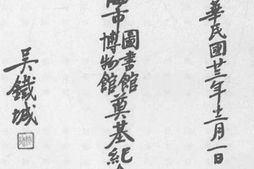 華民國廿三年十二月一日
市圖書館博物館奠基紀
吳鐵城